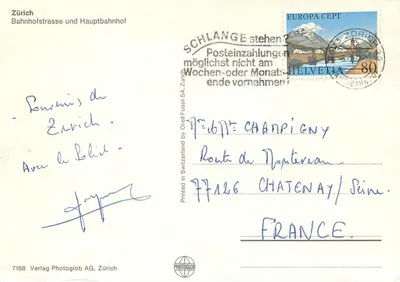 Zürich
Bahnhofstrasse und Hauptbahnhof
SCHLANGE stehen?
Posteinzahlungen
möglichst nicht am
Wochen-oder Monats-
ende vornehmen!
EUROPA CEPT
HELVETIA 80
Souvenir de
Zurich.
Avec le Soleil.
Printed in Switzerland by Orell Füssli SA, Zurich
M. et Me CHAMPIGNY
Route de Montereau
77126 CHATENAY/Seine.
FRANCE.
7188 Verlag Photoglob AG, Zürich
PHOTOGLOB